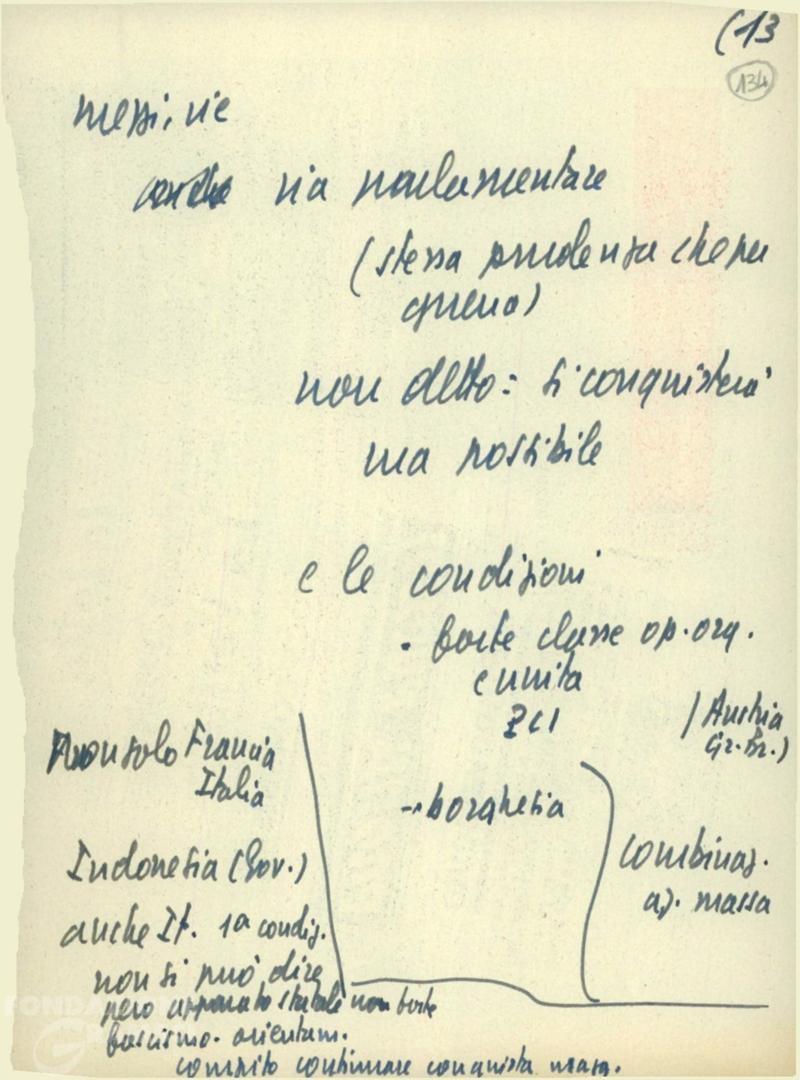 (13
134
messi, vie
anche via parlamentare
(stessa prudenza che per
guerra)
non detto: si conquisterà
ma possibile
e le condizioni
- forte classe op. org.
e unita
PCI
/ Austria
Gr. Br.)
- borghesia
combinaz.
az. massa
Non solo Francia
Italia
Indonesia (Gov.)
anche It. 1ª condiz.
non si può dire
però apparato statale non forte
fascismo. orientam.
compito continuare conquista mass.
FONDAZIONE